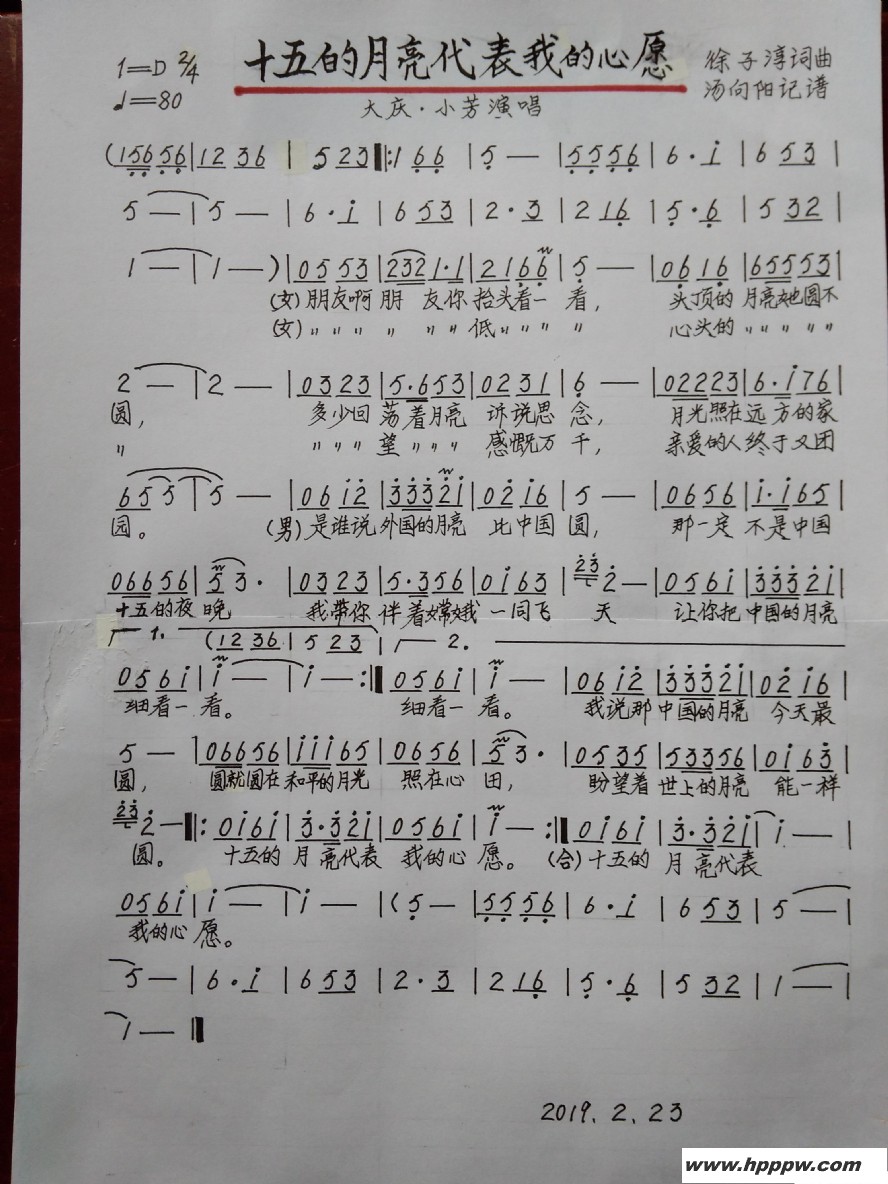 1=D 2/4 十五的月亮代表我的心愿 徐子淳词曲
♩=80 大庆·小芳演唱 汤向阳记谱
(156 56|12 36 | 5 23‖:1 66 |5 — |55 56|6·i |6 53|
5 — |5 — |6·i |6 53|2·3 |2 16|5·6 |5 32|
1 — |1 —)|05 53|232 1·1|21 66|5 — |06 16|6555 53|
(女)朋友啊 朋 友你 抬头看一 看, 头顶的 月亮她圆不
(女)〃〃〃 〃 〃〃 低〃〃〃 〃 心头的 〃〃〃〃〃
2 — |2 — |03 23|5·6 53|02 31|6 — |0222 23|6·i 76|
圆, 多少回 荡着月亮 诉说思 念, 月光照在 远方的家
〃 〃〃〃 望〃〃〃 感慨万 千, 亲爱的人 终于又团
65 5 |5 — |06 i2|333 2i|02 i6|5 — |06 56|i·i 65|
园。 (男)是谁说 外国的月亮 比中国 圆, 那一定 不是中国
066 56|5 3·|03 23|5·3 56|0i 63|23 2 — |05 6i|333 2i|
十五的夜 晚 我带你 伴着嫦娥 一同飞 天 让你把 中国的月亮
1. (12 36|5 23) 2.
05 6i|i — |i — :‖05 6i|i — |06 i2|333 2i|02 i6|
细看一 看。 细看一 看。 我说那 中国的月亮 今天最
5 — |066 56|iii 65|06 56|5 3·|05 35|533 56|0i 63|
圆, 圆就圆在 和平的月光 照在心 田, 盼望着 世上的月亮 能一样
23 2—‖:0i 6i|3·3 2i|05 6i|i — :‖0i 6i|3·3 2i|i — |
圆。 十五的 月亮代表 我的心 愿。 (合)十五的 月亮代表
05 6i|i — |i — |(5 — |55 56|6·i |6 53|5 — |
我的心 愿。
5 — |6·i |6 53|2·3 |2 16|5·6 |5 32|1 — |
1 — ‖
2019. 2. 23
www.hpppw.com